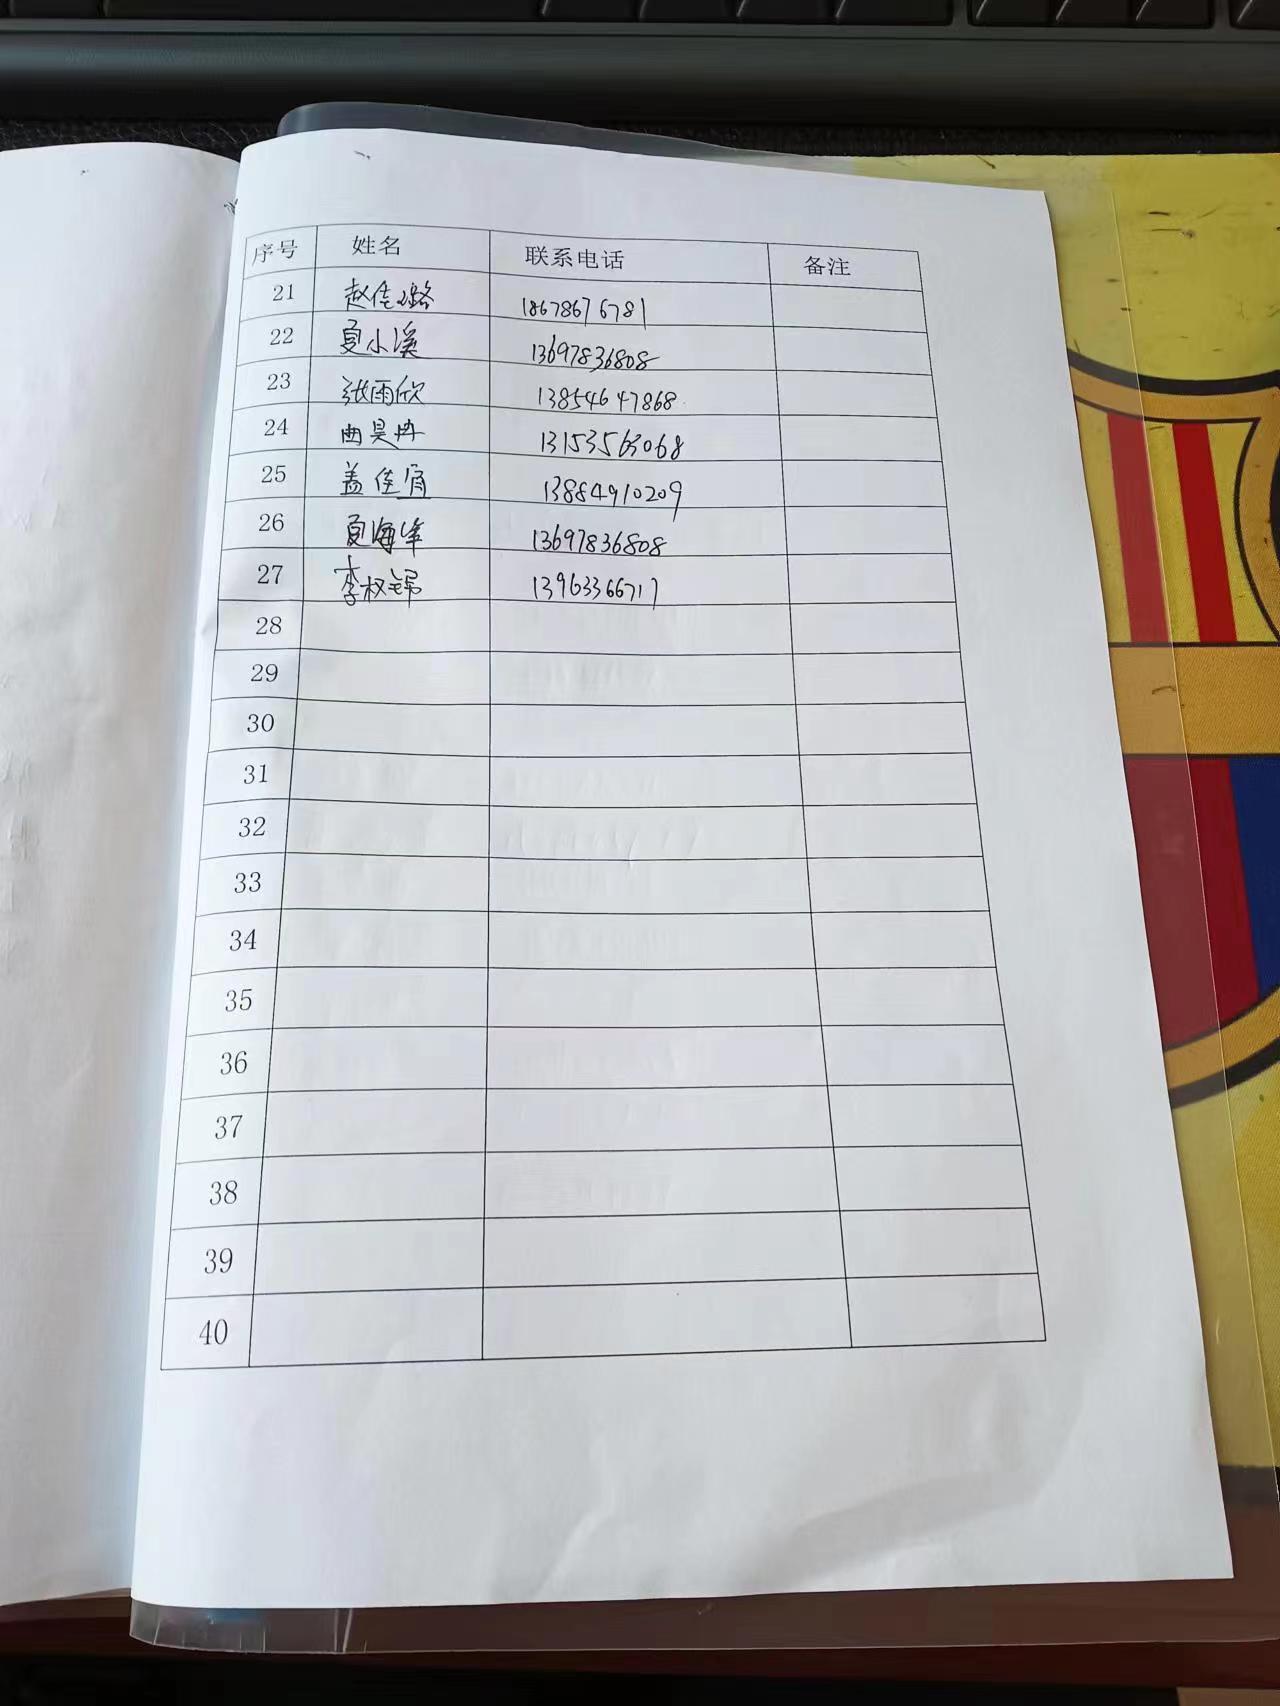 序号 姓名 联系电话 备注
21 赵佳璐 18678676781
22 夏小溪 13697836808
23 张雨欣 13854647868
24 曲昊冉 13153563068
25 盖佳 13884910209
26 夏海峰 13697836808
27 李权锦 13963366717
28
29
30
31
32
33
34
35
36
37
38
39
40